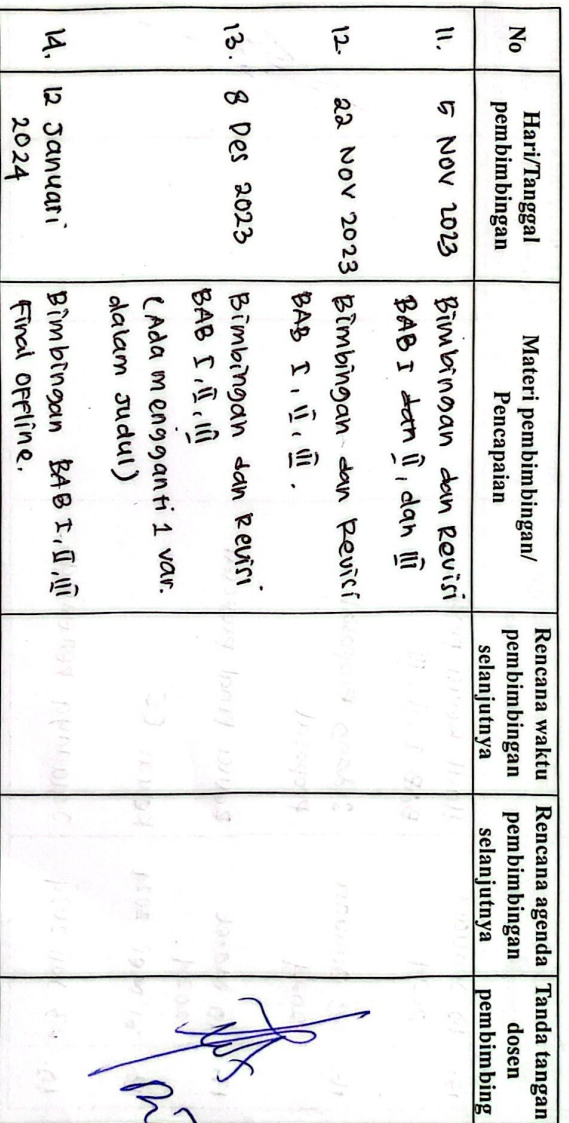 No
Hari/Tanggal
pembimbingan
Materi pembimbingan/
Pencapaian
Rencana waktu
pembimbingan
selanjutnya
Rencana agenda
pembimbingan
selanjutnya
Tanda tangan
dosen
pembimbing
11.
5 Nov 2023
Bimbingan dan Revisi
BAB I dan II, dan III
12.
22 Nov 2023
Bimbingan dan Revisi
BAB I, II, III.
13.
8 Des 2023
Bimbingan dan Revisi
BAB I, II, III
(Ada mengganti 1 var.
dalam Judul)
14.
12 Januari
2024
Bimbingan BAB I, II, III
Final offline.